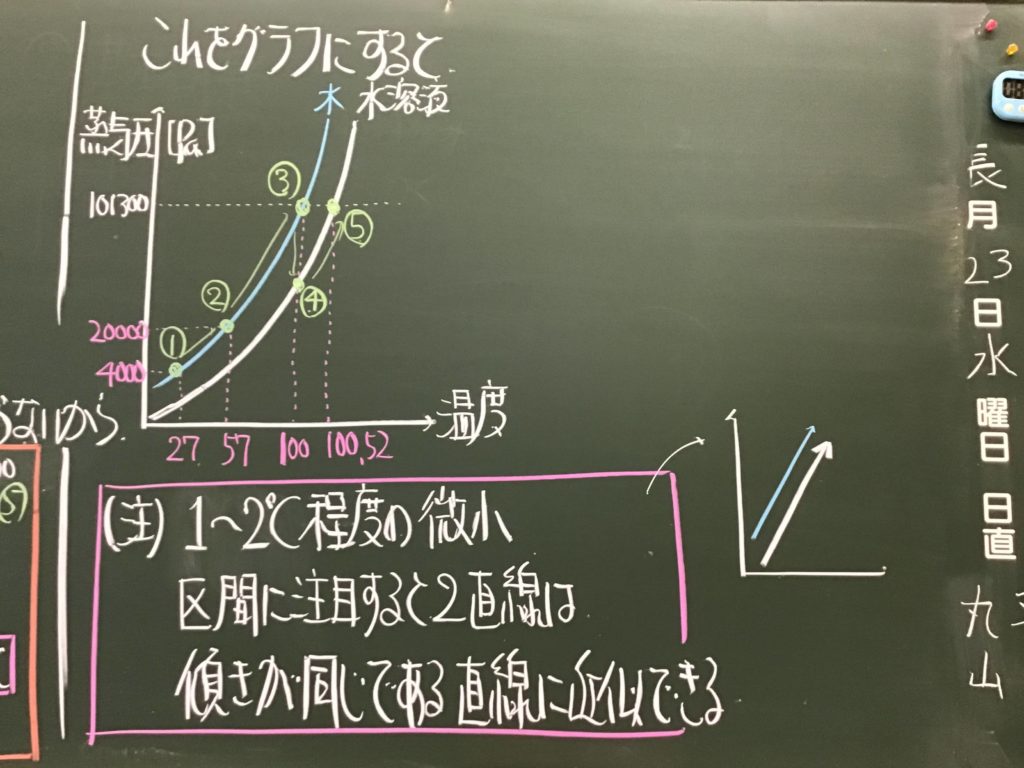 これをグラフにすると
水 水溶液
蒸気圧 [Pa]
101300
20000
4000
① ② ③ ④ ⑤
27 57 100 100.52
温度
らないから
(注) 1〜2℃程度の微小
区間に注目すると2直線は
傾きが同じである直線に近似できる
長
月
23
日
水
曜
日
日
直
丸
山